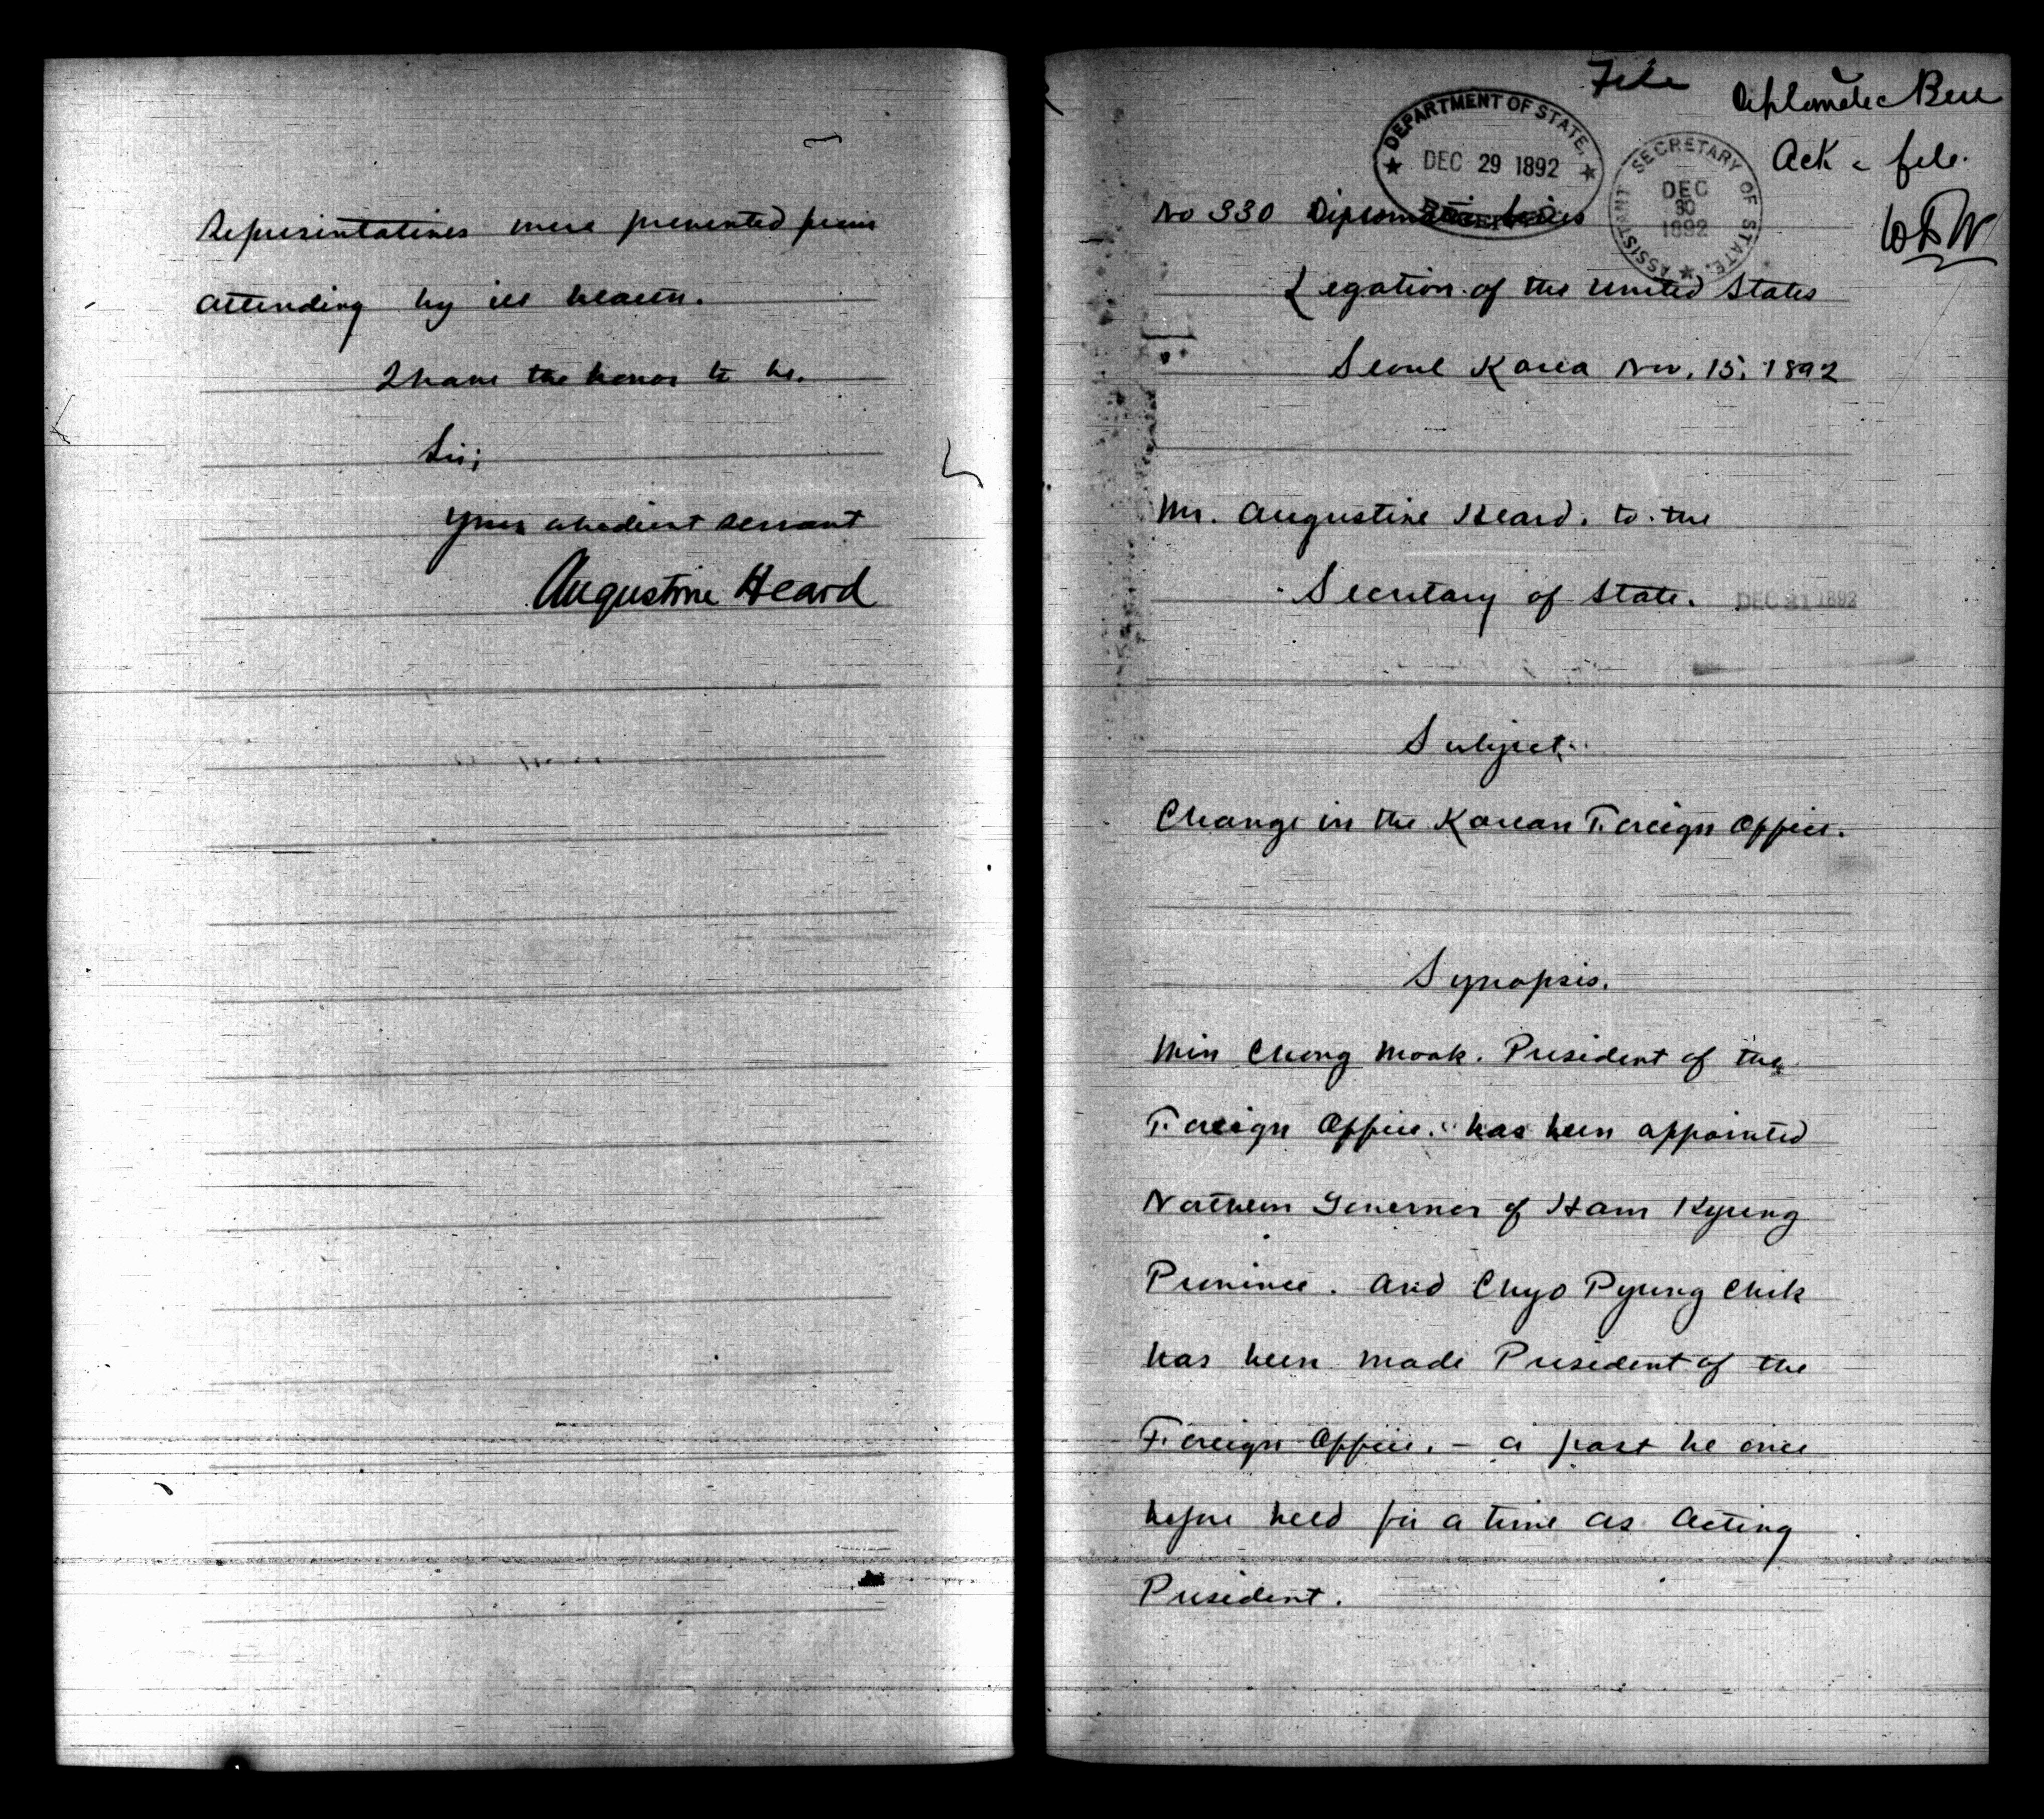 Representatives were prevented from
attending by ill health.
I have the honor to be,
Sir;
Your obedient servant
Augustine Heard
File
Diplomatic Bureau
Ack & file.
DEPARTMENT OF STATE,
DEC 29 1892
RECEIVED
ASSISTANT SECRETARY OF STATE.
DEC
30
1892
No 330 Diplomatic Series
Legation of the United States
Seoul Korea Nov. 15, 1892
Mr. Augustine Heard. to the
Secretary of State.
DEC 31 1892
Subject.
Change in the Korean Foreign Office.
Synopsis.
Min Chong Mook. President of the
Foreign Office. has been appointed
Northern Governor of Ham Kyung
Province. and Chyo Pyung Chik
has been made President of the
Foreign Office. – a post he once
before held for a time as Acting
President.